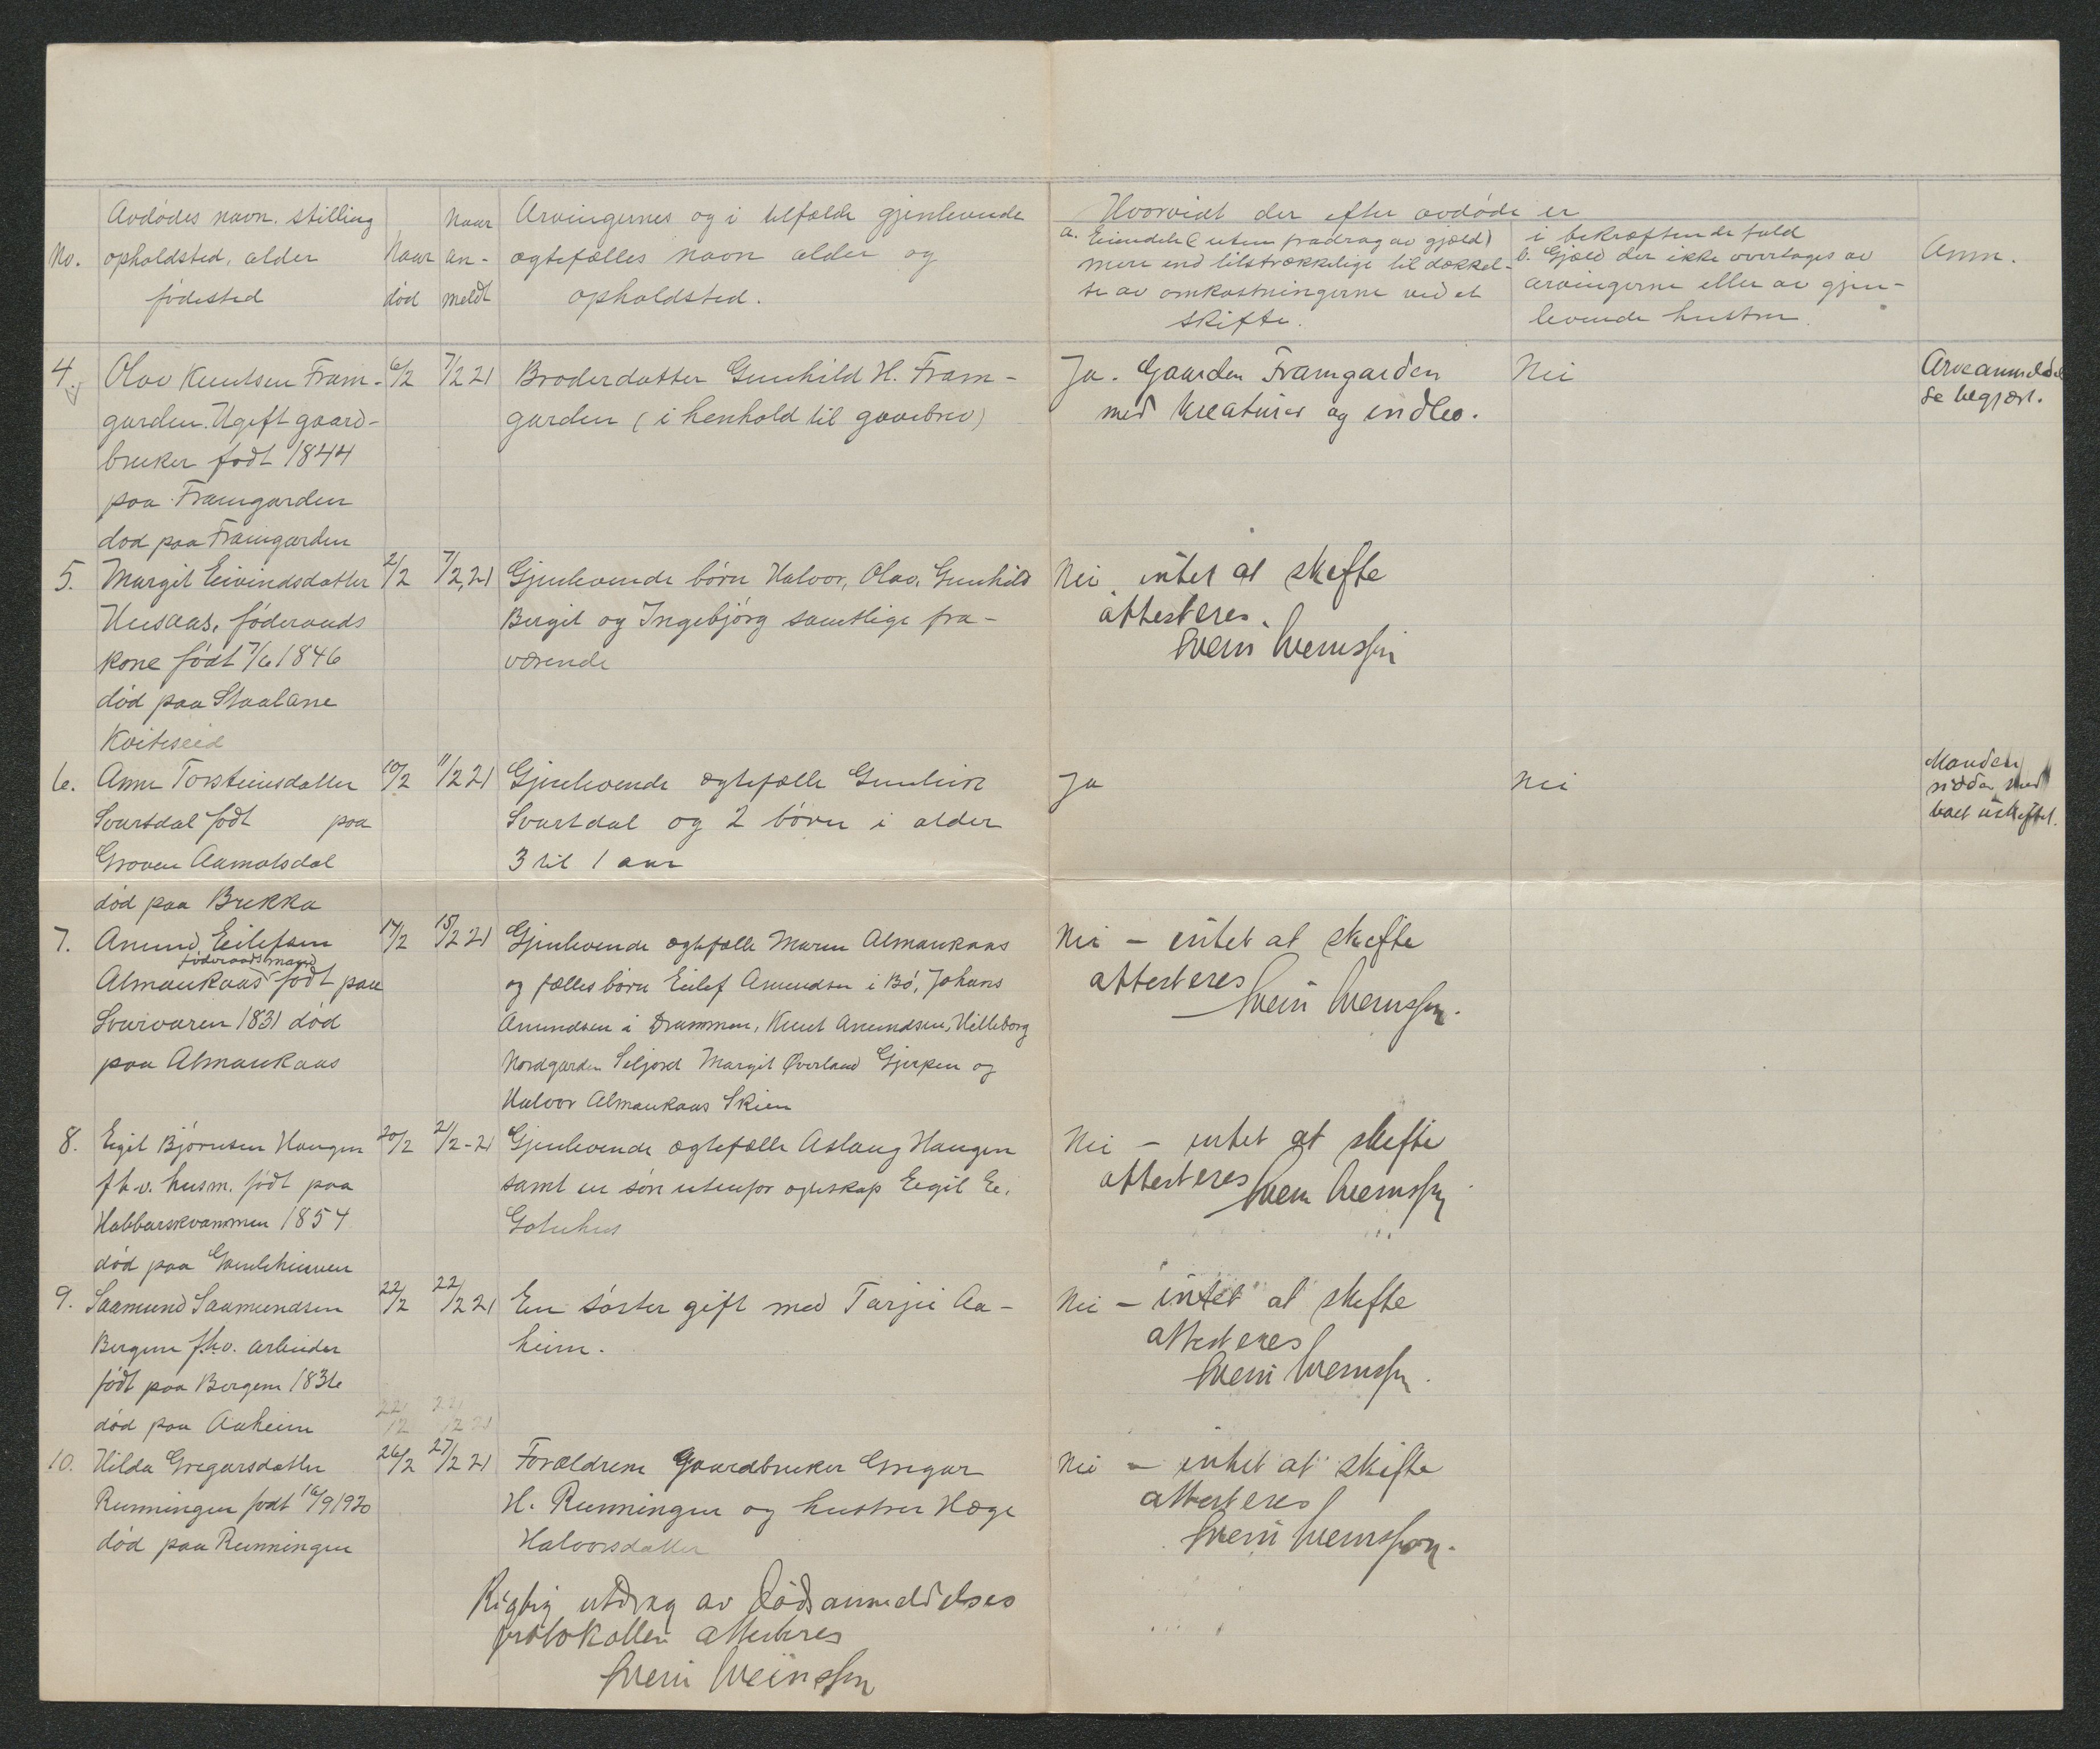 No.
Avdødes navn. stilling
opholdsted, alder
fødested
Naar
død
Naar
an-
meldt
Arvingernes og i tilfælde gjenlevende
egtefælles navn alder og
opholdsted.
Hvorvidt der efter avdøde er
a. Eiendele (uten fradrag av gjæld)
mere end tilstrækkelige til dækkel-
se av omkostningerne ved et
skifte.
i bekræftende fald
b. Gjæld der ikke overtages av
arvingerne eller av gjen-
levende hustru
Anm.
4.
Olav Knutsen Fram-
garden. Ugift gaard-
bruker født 1844
paa Framgarden
død paa Framgarden
6/2
7/2 21
Broderdatter Gunhild H. Fram-
garden (i henhold til gavebrev)
Ja. Gaarden Framgarden
med kreaturer og indbo.
Nei
Arveanmeldel
se begjært.
5.
Margit Eivindsdatter
Husaas, føderaads
kone født 7/6 1846
død paa Staalane
Kviteseid
2/2
7/2, 21
Gjenlevende børn Halvor, Olav, Gunhild
Bergit og Ingebjørg samtlige fra-
værende
Nei intet at skifte
attesteres.
Svein Sveinsson
6.
Anne Torsteinsdatter
Svartdal født paa
Groven Aamotsdal
død paa Brekka
10/2
11/2 21
Gjenlevende egtefælle Gunleik
Svartdal og 2 børn i alder
3 til 1 aar
Ja
Nei
Manden
sidder med
boet uskiftet.
7.
Anund Eilefsen
føderaadsmand
Almankaas født paa
Svarvaren 1831 død
paa Almankaas
17/2
18/2 21
Gjenlevende egtefælle Maren Almankaas
og fælles børn Eilef Anundsen i Bø, Johans
Anundsen i Drammen, Knut Anundsen, Villeborg
Nordgarden Seljord Margit Øverland Gjerpen og
Halvor Almankaas Skien
Nei - intet at skifte
attesteres
Svein Sveinsson.
8.
Eigil Bjørnsen Haugen
fhv. husm. født paa
Habbarskvammen 1854
død paa
20/2
21/2-21
Gjenlevende egtefælle Aslaug Haugen
samt en søn utenfor egteskap Eigil Ei.
Gotuhus
Nei - intet at skifte
attesteres
Svein Sveinsson
9.
Saamund Saamundsen
Bergum f.h.v. arbeider
født paa Bergum 1836
død paa Aaheim
22/2
22/2 21
En søster gift med Tarjei Aa-
heim.
Nei - intet at skifte
attesteres
Svein Sveinsson.
10.
Hilda Gregarsdatter
Runningen født 16/9 1920
død paa Runningen
26/2
27/2 21
Forældrene Gaardbruker Gregar
H. Runningen og hustru Hæge
Halvorsdatter
Nei - intet at skifte
attesteres
Svein Sveinsson.
Rigtig utdrag av Dødsanmeldelses
protokollen attesteres
Svein Sveinsson